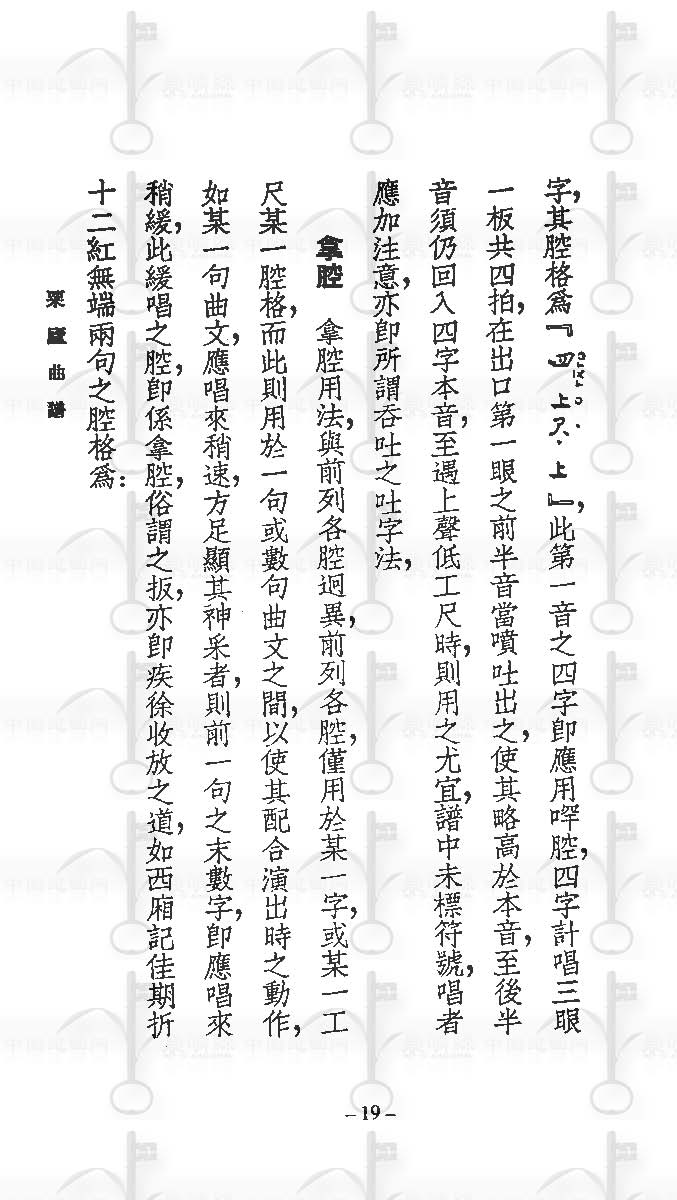 字，其腔格爲『四上尺上』，此第一音之四字卽應用㖕腔，四字計唱三眼
一板共四拍，在出口第一眼之前半音當噴吐出之，使其略高於本音，至後半
音須仍回入四字本音，至遇上聲低工尺時，則用之尤宜，譜中未標符號，唱者
應加注意，亦卽所謂吞吐之吐字法，
拿腔　拿腔用法，與前列各腔迥異，前列各腔，僅用於某一字，或某一工
尺某一腔格，而此則用於一句或數句曲文之間，以使其配合演出時之動作，
如某一句曲文，應唱來稍速，方足顯其神采者，則前一句之末數字，卽應唱來
稍緩，此緩唱之腔，卽係拿腔，俗謂之扳，亦卽疾徐收放之道，如西廂記佳期折
十二紅無端兩句之腔格爲：
粟廬曲譜
–19–